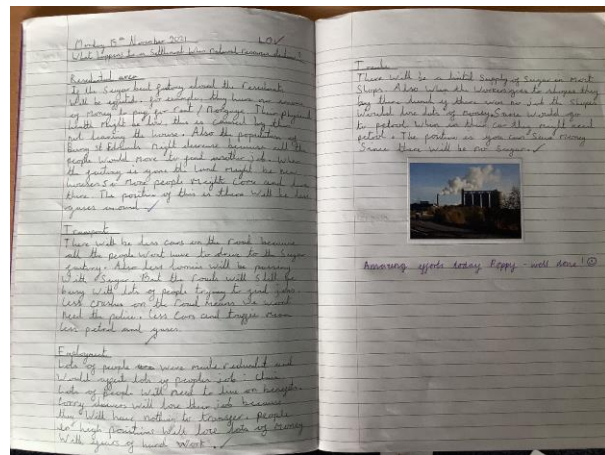 Monday 15th November 2021 LO✓
What happens to a Settlement when Natural resources decline?
Residential area
If the Sugar beet factory closed the residents
Will be affected for example they have no income
of money to pay for rent / Morgage. There physical
health Might be low this is caused by them
not leaving the house. Also the population of
Bury St Edmunds Might decrease because all the
people would move to find another job. When
the factory is gone the land Might be new
houses so more people Might Come and live
there. The positive of this is there Will be less
gases around.
Transport
There Will be less cars on the road because
all the people Wont have to drive to the Sugar
factory. Also less lorries Will be passing
With Sugar. But the roads Will still be
busy With lots of people trying to find jobs.
less crashes on the road means we wont
need the police. less Cars and traffic mean
less petrol and gases.
Employment
Lots of people were made redundant and
Would affect lots of peoples job.
Lots of people Will need to live on benefits.
Lorry drivers Will lose their job because
they Will have nothin to transfer. People
in high positions Will lose lots of money
With years of hard Work.
There Will be a limited Supply of Sugar in Most
Shops. Also When the Workers goes to shops they
buy there lunch if there was no job the Shops
Would lose lots of money. Some Would go
to petrol When in their car they might need
petrol. The positive is you can Save money
Since there Will be no Sugar.
Amazing efforts today Poppy - well done! ☺